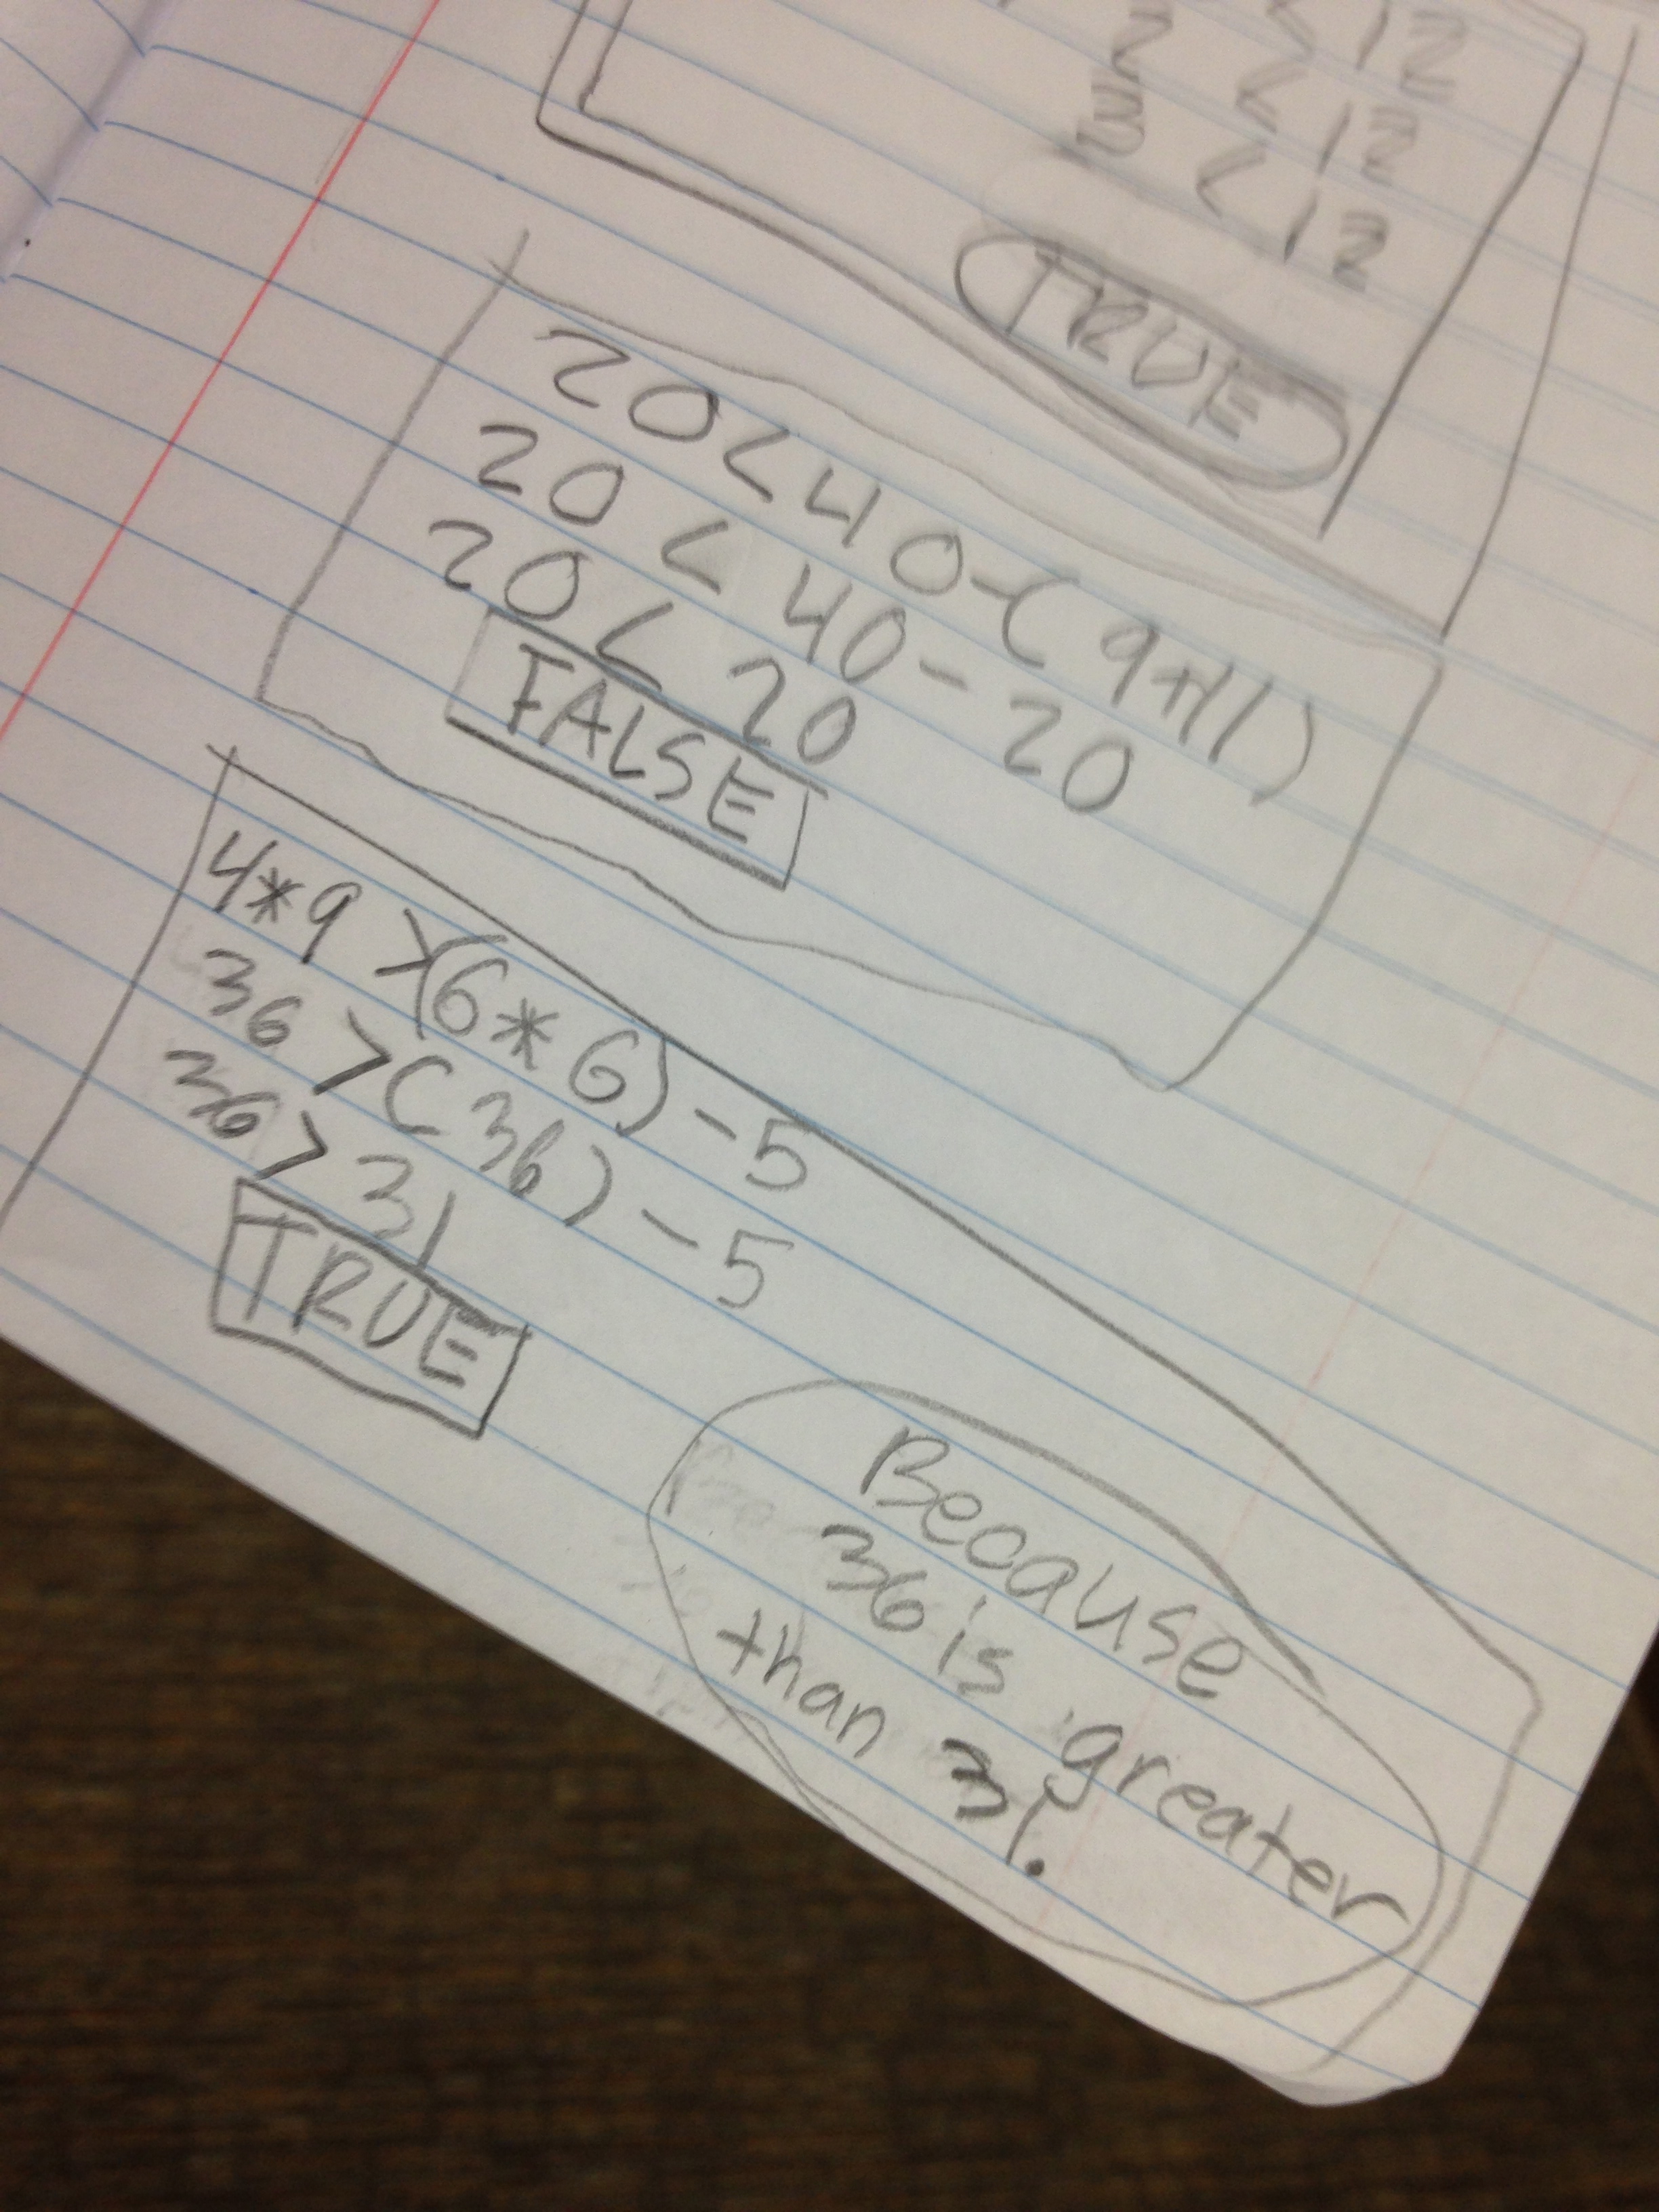 < 12
2 < 12
3 < 12
TRUE
20<40-(9+11)
20 < 40-20
20 < 20
FALSE
4*9 >(6*6)-5
36 >(36)-5
36 > 31
TRUE
Because
36 is greater
than 31.